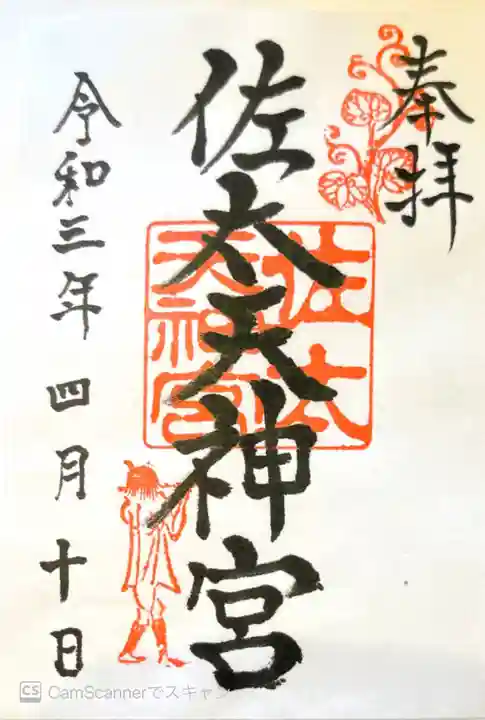 奉拝
佐太天神宮
佐太
天神宮
令和三年四月十日
CS CamScannerでスキャン